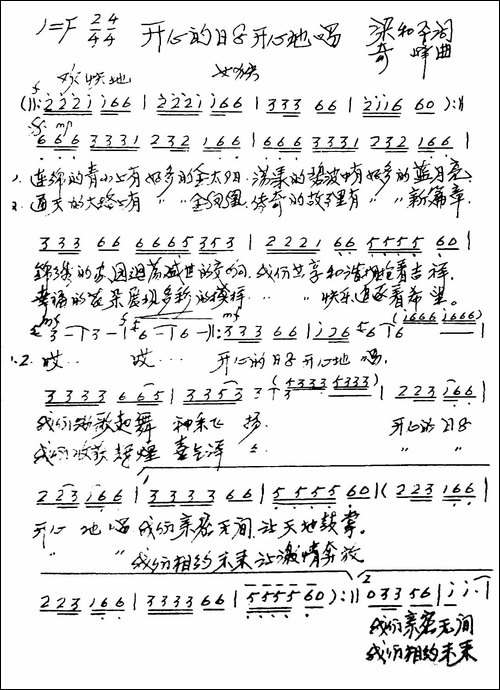 1=F 2/4 4/4 开心的日子开心地唱 梁和平词
奇峰曲
欢快地
(‖: 2 2 2 1 1 6 6 | 2 2 2 1 1 6 6 | 3 3 3 6 6 | 2 1 1 6 6 0) :‖
6 6 6 3 3 3 1 2 3 2 1 6 6 | 6 6 6 3 3 3 1 2 3 2 1 6 6 |
1. 连绵的青山上有好多的金太阳,荡漾的碧波中有好多的蓝月亮
2. 通天的大路上有 〃 〃 金凤凰,传奇的故事里有 〃 〃 新篇章.
3 3 3 6 6 6 6 6 5 3 5 3 | 2 2 2 1 6 6 5 5 5 5 6 0 |
锦绣的家园回荡盛世的交响,我们共享和谐拥抱着吉祥.
幸福的花朵展现多彩的模样. 〃 〃 快乐追逐着希望。
3 – 1 3 – 1 6 – 1 6 – :‖ 3 3 3 6 6 | 1 2 6 6 1 6 (1 6 6 6 1 6 6 6)
1.2. 哎… 哎… 开心的日子开心地唱.
3 3 3 3 6 6 5 | 3 3 3 5 3 (5 3 3 3 5 3 3 3) | 2 2 3 1 6 6 |
我们 歌起舞 神采飞扬. 开心的日子
我们收获辉煌 喜气洋 〃 〃 〃
2 2 3 1 6 6 | 3 3 3 3 6 6 | 5 5 5 5 6 0 | ( 2 2 3 1 6 6 |
开心地唱 我们亲密无间,让天地鼓掌。
〃 〃 我们相约未来 让激情奔放
2 2 3 1 6 6 | 3 3 3 3 6 6 | 5 5 5 5 6 0 ) :‖ 2 0 3 3 5 6 | 1 1 · 1
我们亲密无间
我们相约未来